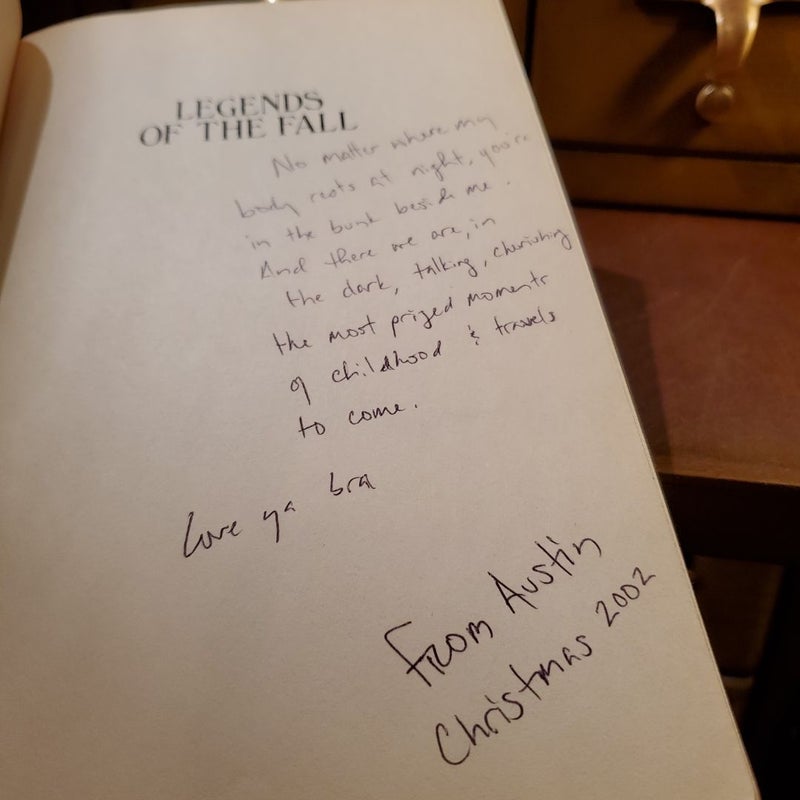 LEGENDS
OF THE FALL
No matter where my
body rests at night, you're
in the bunk beside me.
And there we are, in
the dark, talking, cherishing
the most prized moments
of childhood & travels
to come.
Love ya bra
From Austin
Christmas 2002